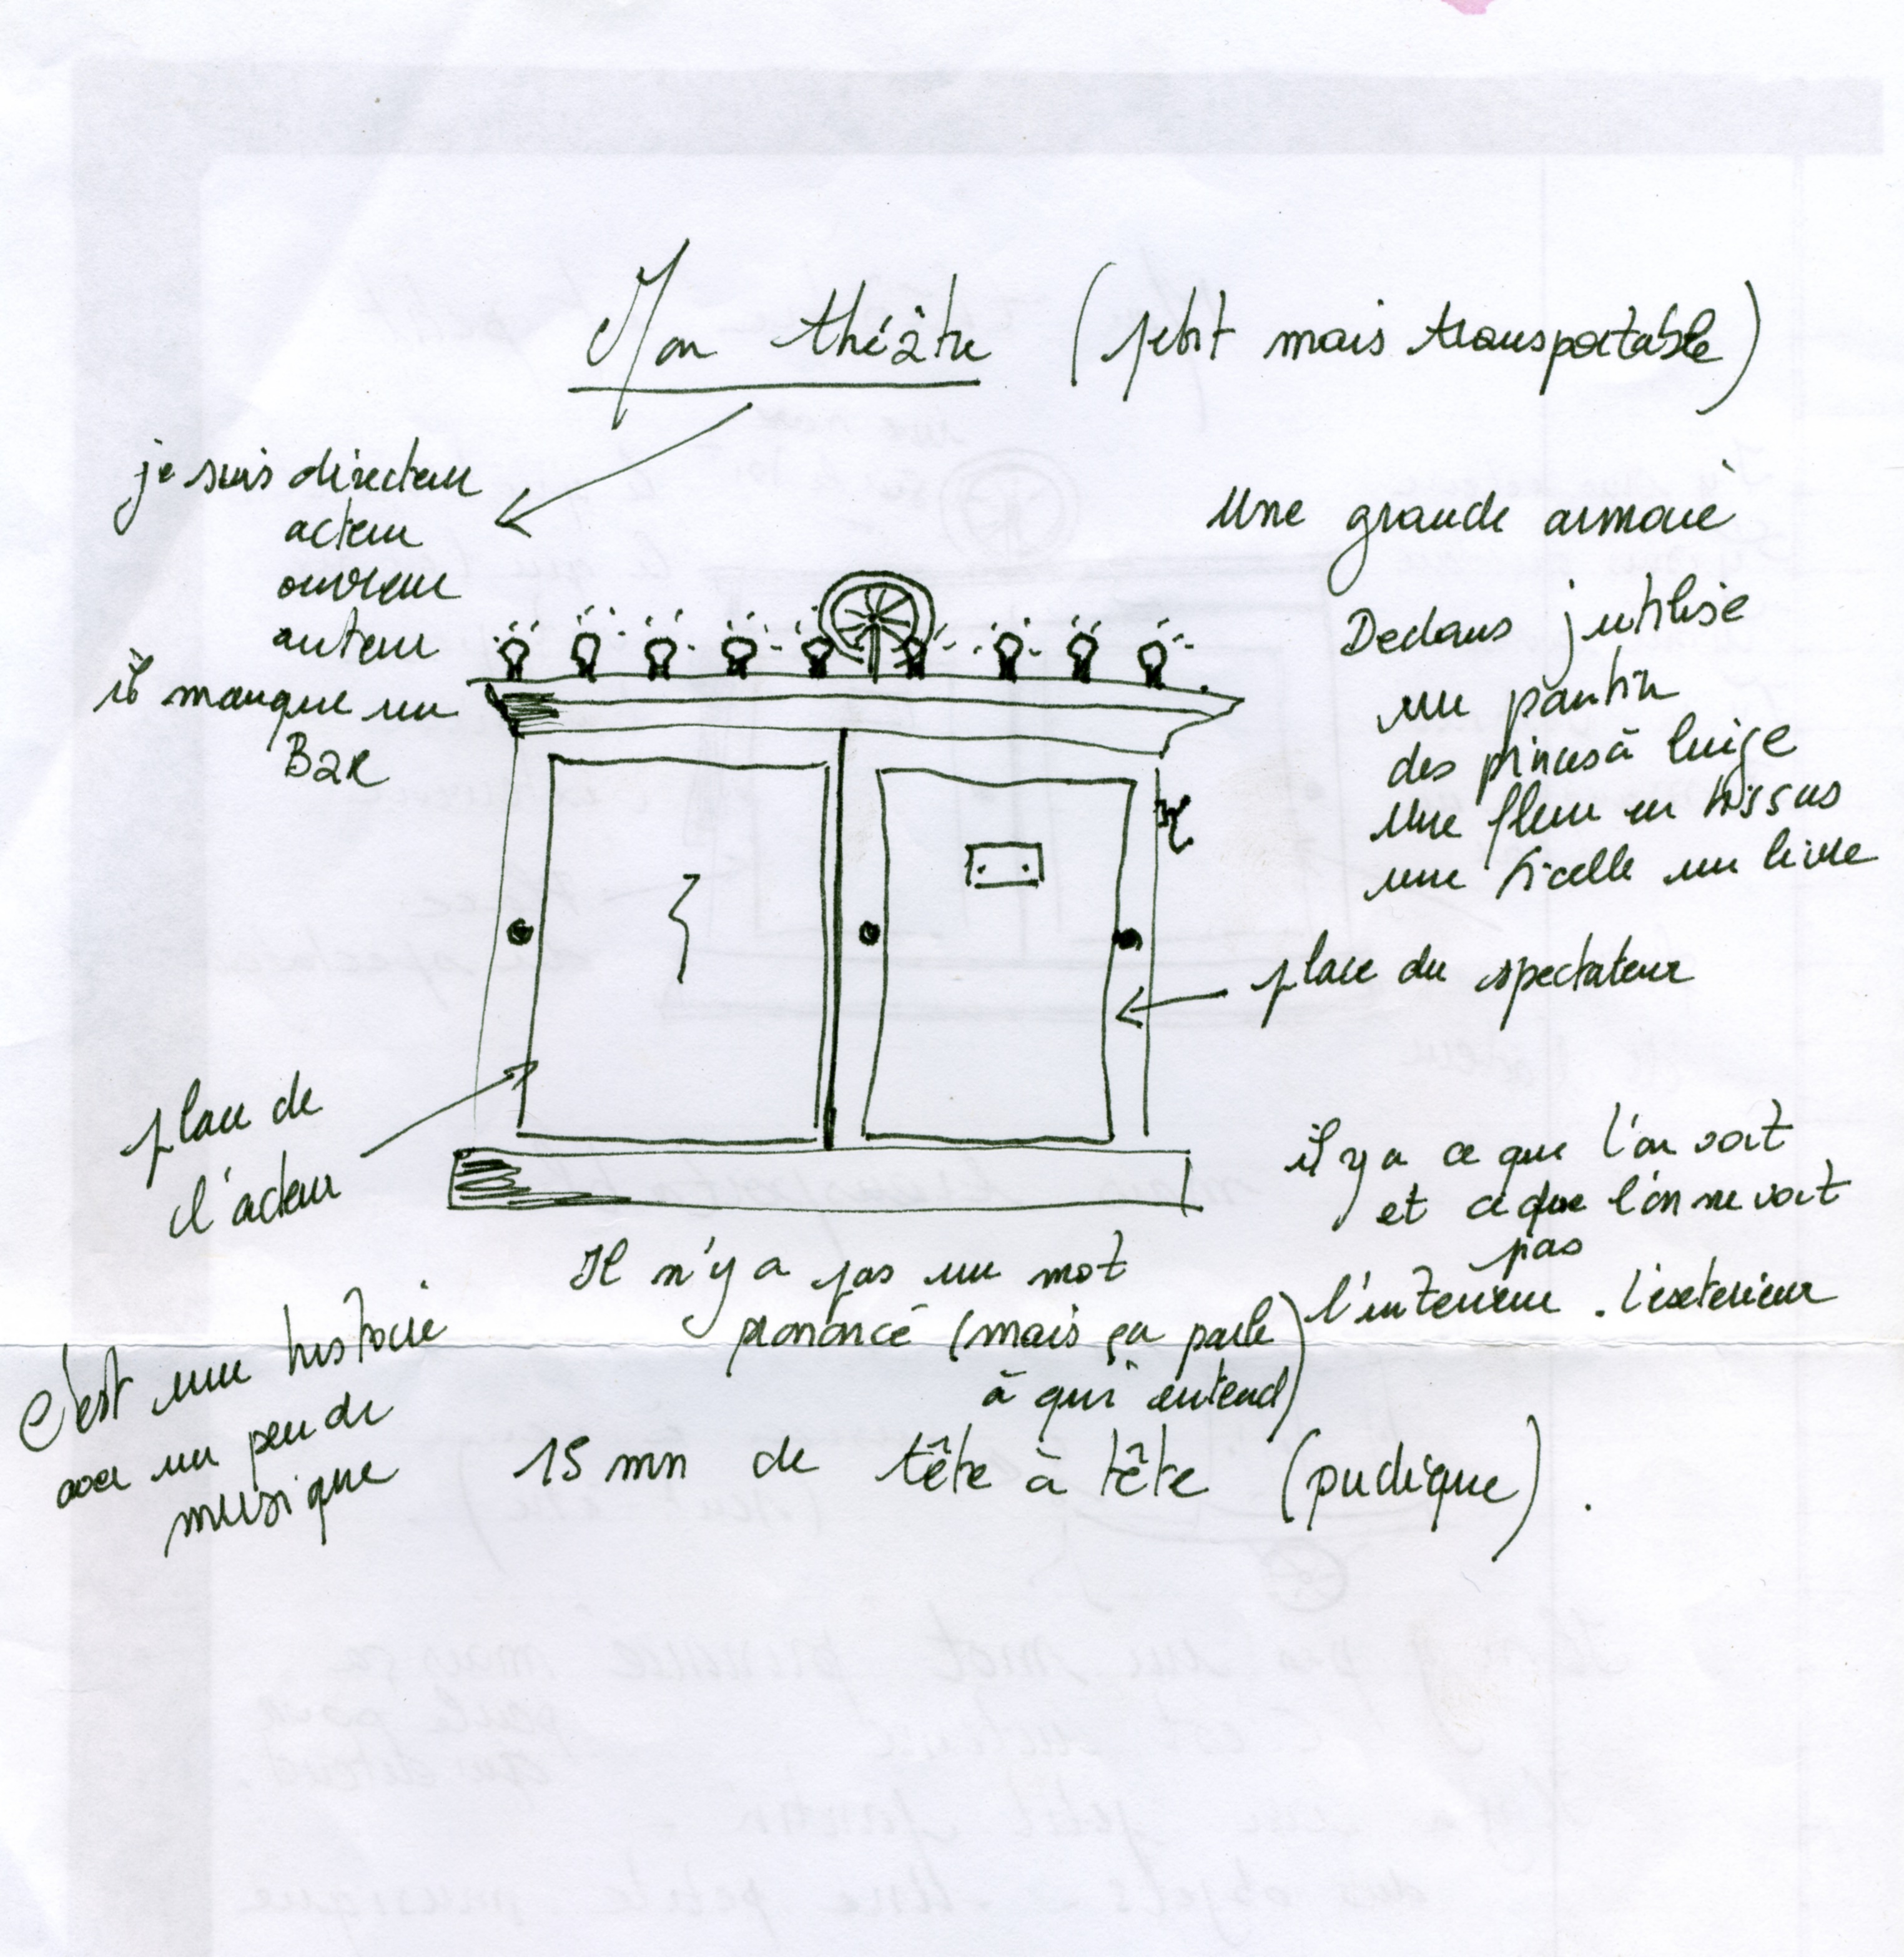 Mon théâtre (petit mais transportable)
je suis directeur
acteur
ouvreur
auteur
il manque un
Bar
Une grande armoire
Dedans j'utilise
un pantin
des pinces à linge
Une fleur en tissus
une ficelle un livre
place du spectateur
place de
l'acteur
il y a ce que l'on voit
et ce que l'on ne voit
pas
l'interieur . l'exterieur
Il n'y a pas un mot
prononcé (mais ça parle
à qui entend)
C'est une histoire
avec un peu de
musique
15 mn de tête à tête (pudique).